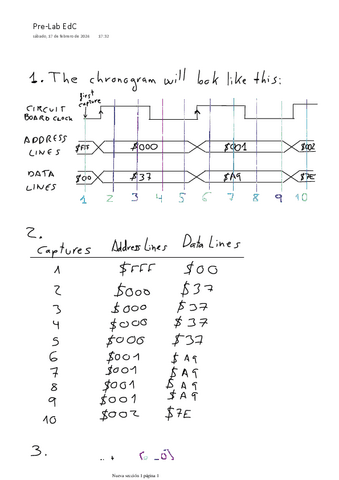 Pre-Lab EdC
sábado, 17 de febrero de 2024 17:33
1. The chronogram will look like this:
first capture
CIRCUIT
BOARD CLOCK
ADDRESS
LINES
$FFF $000 $001 $002
DATA
LINES
$00 $37 $A9 $7E
1 2 3 4 5 6 7 8 9 10
2.
Captures Address Lines Data Lines
1 $FFF $00
2 $000 $37
3 $000 $37
4 $000 $37
5 $000 $37
6 $001 $A9
7 $001 $A9
8 $001 $A9
9 $001 $A9
10 $002 $7E
3.
Nueva sección 1 página 1